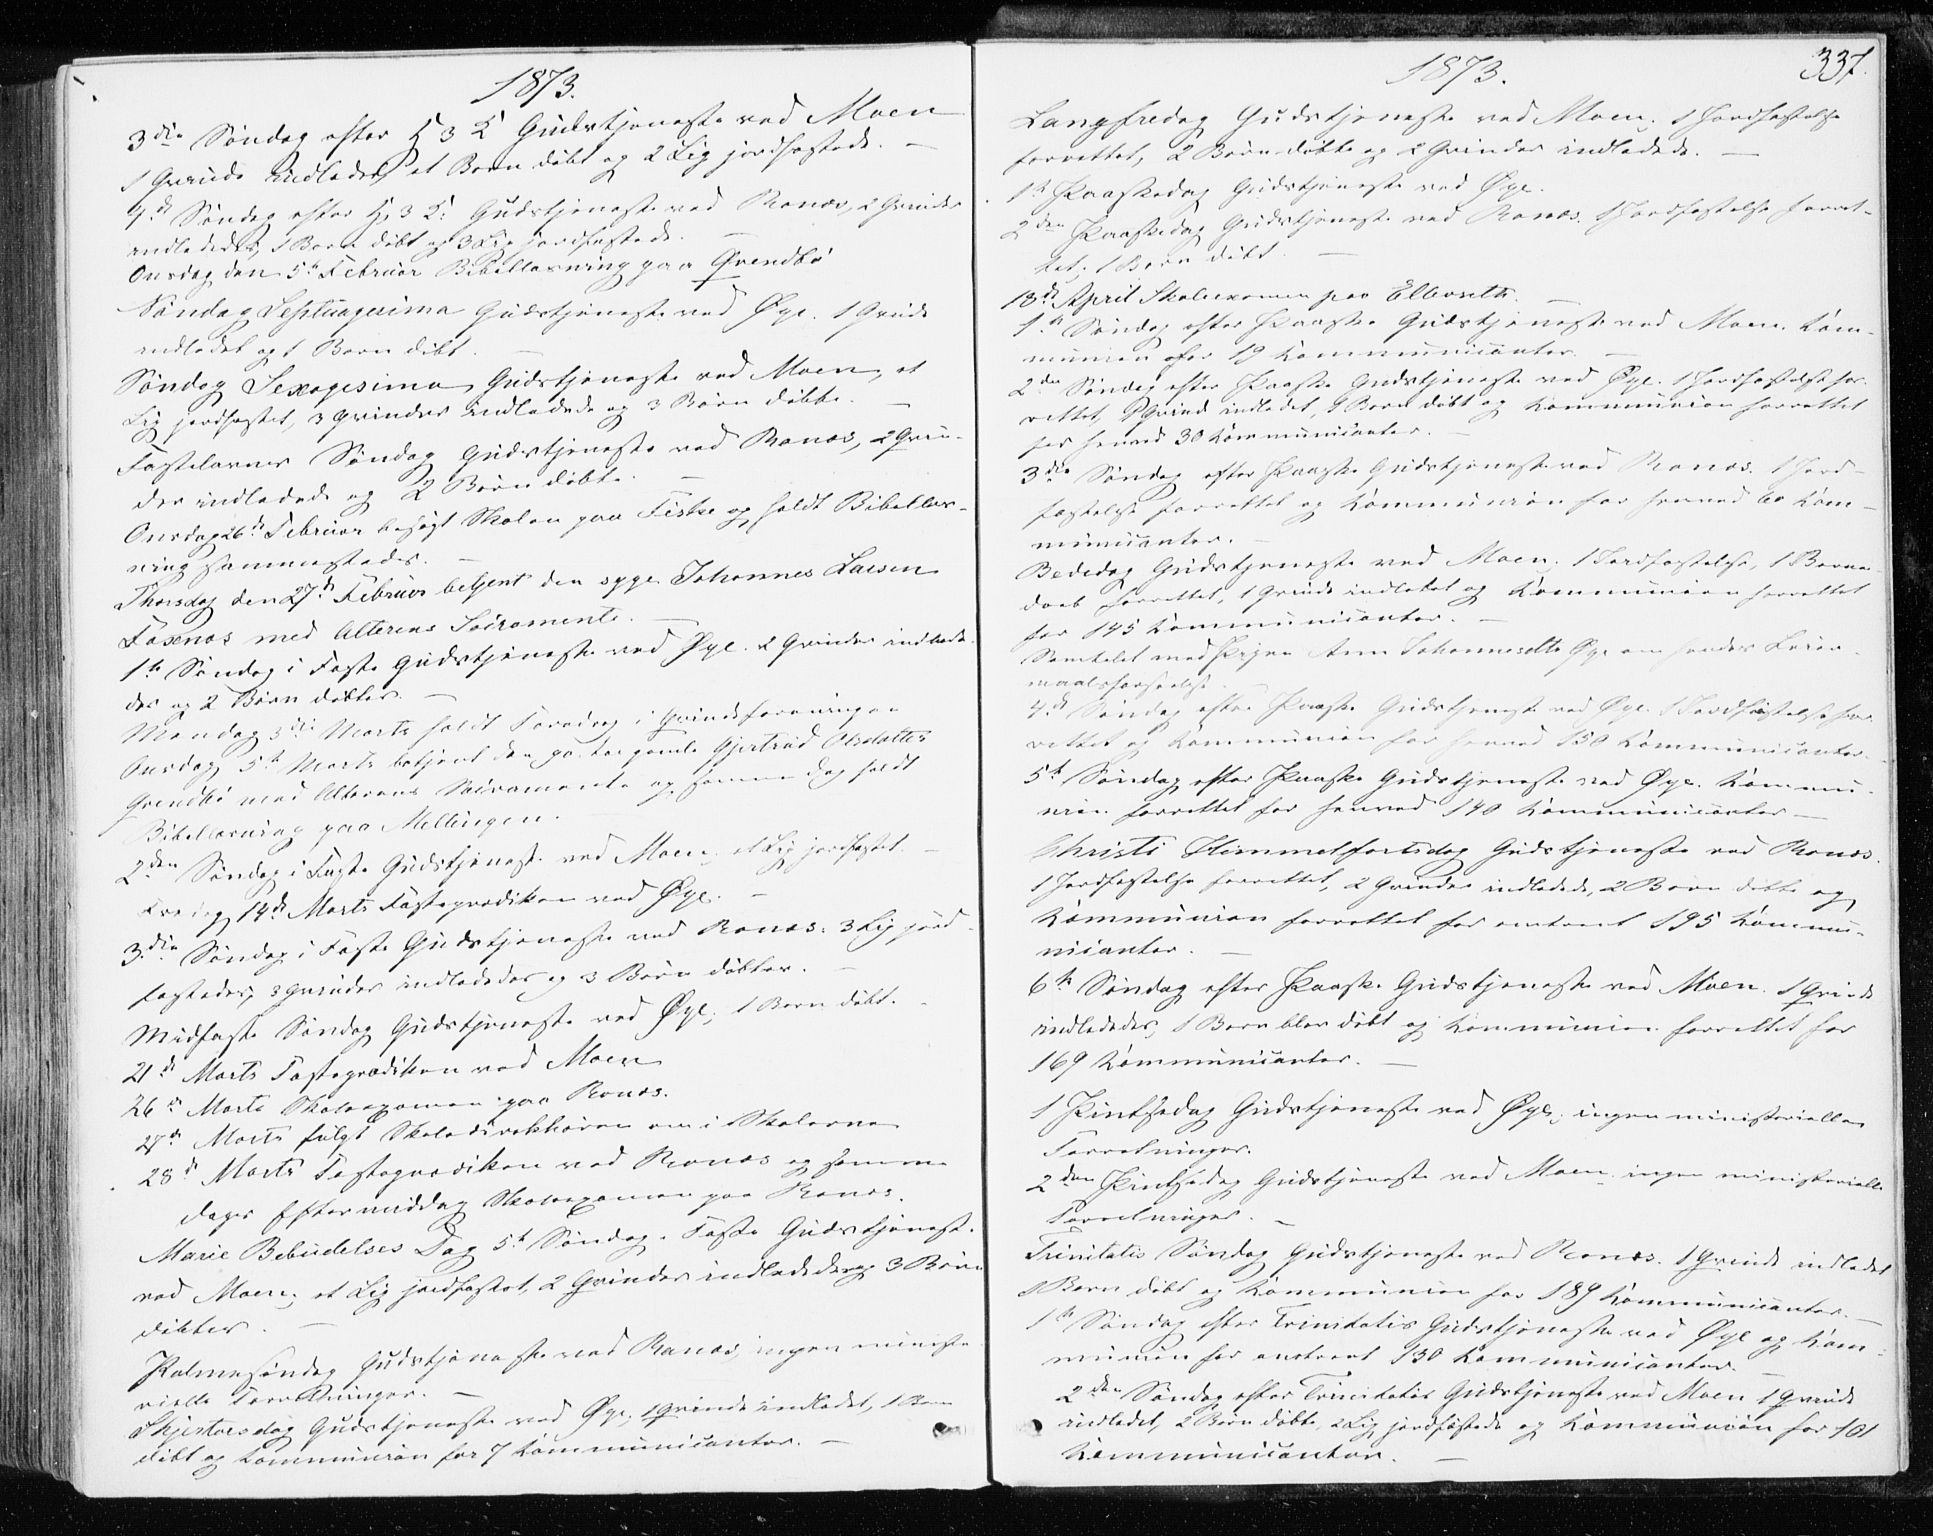 1873.
3die Søndag efter H 3 K Gudstjeneste ved Moen
1 Qvinde indledet, et Barn døbt og 2 Lig jordfæstede. —
4de Søndag efter H. 3 K. Gudstjeneste ved Ranæs, 2 Qvinder
indledede, 1 Barn døbt og 3 Lig jordfæstede. —
Onsdag den 5te Februar Bibellæsning paa Qvendbø
Søndag Septuagesima Gudstjeneste ved Øye. 1 Qvinde
indledet og 1 Barn døbt. —
Søndag Sexagesima Gudstjeneste ved Moen, et
Lig jordfæstet, 3 Qvinder indledede og 3 Børn døbte. —
Fastelavns Søndag Gudstjeneste ved Ranæs, 2 Qvin-
der indledede og 2 Børn døbte. —
Onsdag 26de Februar besøgt Skolen paa Fiske og holdt Bibellæs-
ning sammesteds. —
Thorsdag den 27de Februar betjent den syge Johannes Larsen
med Alterens Sacramente. —
1ste Søndag i Faste Gudstjeneste ved Øye. 2 Qvinder indlede-
des og 2 Børn døbtes. —
Mandag 3die Marts holdt Foredrag i Qvindeforeningen
Onsdag 5te Marts betjent den gamle Gjertrud Olsdatter
Qvendbø med Alterens Sacramente og samme Dag holdt
Bibellæsning paa Mellingen. —
2den Søndag i Faste Gudstjeneste ved Moen, et Lig jordfæstet. —
Fredag 14de Marts Fasteprædiken ved Øye. —
3die Søndag i Faste Gudstjeneste ved Ranæs. 3 Lig jord-
fæstedes, 3 Qvinder indlededes og 3 Børn døbtes. —
Midfaste Søndag Gudstjeneste ved Øye, 1 Barn døbt. —
21de Marts Fasteprædiken ved Moen
26de Marts Skoleexamen paa Ranæs.
27de Marts fulgt Skoledirektøren om i Skolerne
28de Marts Fasteprædiken ved Ranæs og samme
Dags Eftermiddag Skoleexamen paa Ranæs.
Marie Bebudelses Dag 5te Søndag i Faste Gudstjeneste
ved Moen, et Lig jordfæstet, 2 Qvinder indlededes og 3 Børn
døbtes. —
Palmesøndag Gudstjeneste ved Ranæs, ingen ministe-
rielle Forretninger. —
Skjærtorsdag Gudstjeneste ved Øye, 1 Qvinde indledet, 1 Barn
døbt og Kommunion for 7 Kommunicanter. —
1873.
337.
Langfredag Gudstjeneste ved Moen, 1 Jordfæstelse
forrettet, 2 Børn døbte og 2 Qvinder indledede. —
1ste Paaskedag Gudstjeneste ved Øye.
2den Paaskedag Gudstjeneste ved Ranæs. 1 Jordfæstelse forret-
tet, 1 Barn døbt. —
18de April Skoleexamen paa —
1ste Søndag efter Paaske Gudstjeneste ved Moen. Kom-
munion for 19 Kommunicanter. —
2den Søndag efter Paaske Gudstjeneste ved Øye. 1 Jordfæstelse for-
rettet, 1 Qvinde indledet, 1 Barn døbt og Kommunion forrettet
for henved 30 Kommunicanter. —
3die Søndag efter Paaske Gudstjeneste ved Ranæs. 1 Jord-
fæstelse forrettet og Kommunion for henved 60 Kom-
municanter. —
Bededag Gudstjeneste ved Moen. 1 Jordfæstelse, 1 Barne-
daab forrettet, 1 Qvinde indledet og Kommunion forrettet
for 145 Kommunicanter. —
Samtalet med Pigen Ane Johannesdtr Øye om hendes Leier-
maalsforseelse. —
4de Søndag efter Paaske Gudstjeneste ved Øye. 1 Jordfæstelse for-
rettet og Kommunion for henved 150 Kommunicanter. —
5te Søndag efter Paaske Gudstjeneste ved Øye. Kommu-
nion forrettet for henved 140 Kommunicanter —
Christi Himmelfartsdag Gudstjeneste ved Ranæs.
1 Jordfæstelse forrettet, 2 Qvinder indledede, 2 Børn døbte og
Kommunion forrettet for omtrent 195 Kommu-
nicanter. —
6te Søndag efter Paaske Gudstjeneste ved Moen. 1 Qvinde
indlededes, 1 Barn blev døbt og Kommunion forrettet for
169 Kommunicanter. —
1 Pintsedag Gudstjeneste ved Øye, ingen ministerielle
Forretninger.
2den Pintsedag Gudstjeneste ved Moen, ingen ministerielle
Forretninger. —
Trinitatis Søndag Gudstjeneste ved Ranæs. 1 Qvinde indledet
1 Barn døbt og Kommunion for 189 Kommunicanter. —
1ste Søndag efter Trinitatis Gudstjeneste ved Øye og Kom-
munion for omtrent 130 Kommunicanter. —
2den Søndag efter Trinitatis Gudstjeneste ved Moen 1 Qvinde
indledet, 2 Børn døbte, 2 Lig jordfæstede og Kommunion for 101
Kommunicanter. —